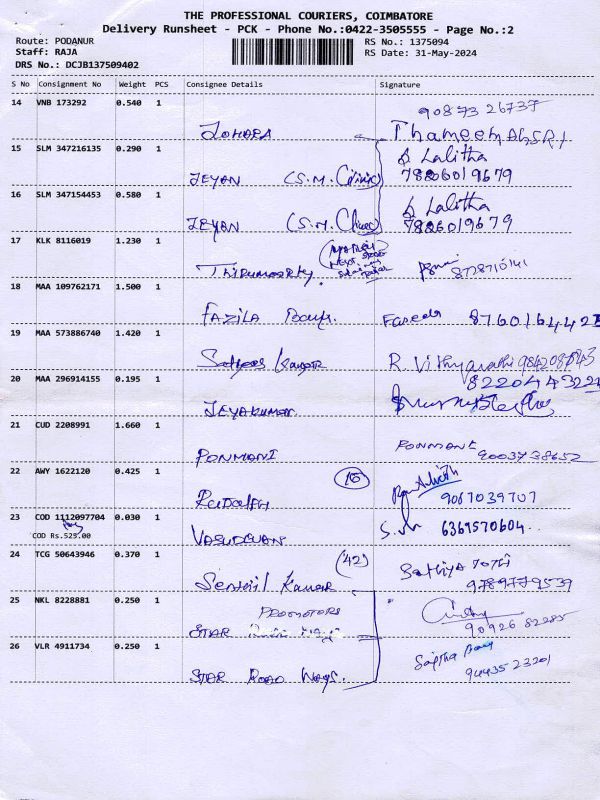 THE PROFESSIONAL COURIERS, COIMBATORE
Delivery Runsheet - PCK - Phone No.:0422-3505555 - Page No.:2
Route: PODANUR
RS No.: 1375094
Staff: RAJA
RS Date: 31-May-2024
DRS No.: DCJB137509402
S No Consignment No Weight PCS Consignee Details Signature
14 VNB 173292 0.540 1
90873 26737
ZOHARA
15 SLM 347216135 0.290 1
Lalitha
JEYAN (S.M. Clinic) 7826019679
16 SLM 347154453 0.580 1
Lalitha
JEYAN (S.M. Clinic) 7826019679
17 KLK 8116019 1.230 1
Thirumoorthy 8778710141
18 MAA 109762171 1.500 1
FAZILA Banu. Fareeda
19 MAA 573886740 1.420 1
Kumar R.
20 MAA 296914155 0.195 1
JEYAKUMAR.
21 CUD 2208991 1.660 1
PONMANI PONMANI
9003738652
22 AWY 1622120 0.425 1
Rudolph 9087039707
23 COD 1112097704 0.030 1
COD Rs.525.00
VASUDEVAN 6369570604
24 TCG 50643946 0.370 1 (42)
Senthil Kumar Sathiya
9789779539
25 NKL 8228881 0.250 1
PROMOTORS
STAR 90926 82285
26 VLR 4911734 0.250 1
STAR ROAD Ways. 94435 23201